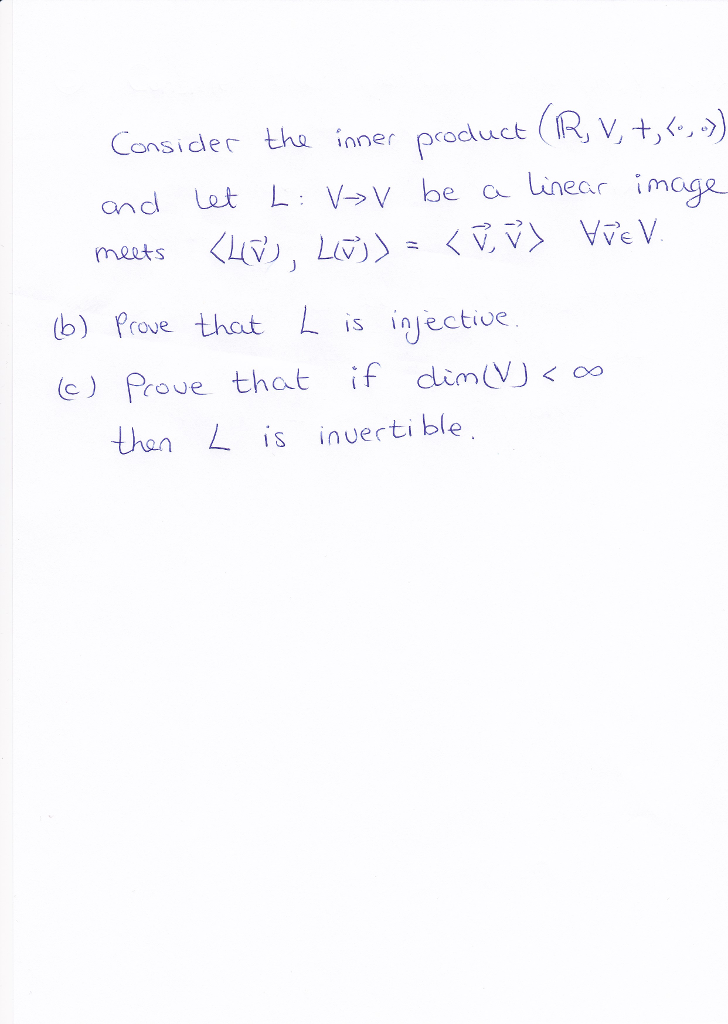 Consider the inner product (ℝ, V, +, <·, ·>)
and let L: V→V be a linear image
meets <L(v⃗), L(v⃗)> = <v⃗, v⃗> ∀v⃗∈V.
(b) Prove that L is injective.
(c) Prove that if dim(V) < ∞
then L is invertible.